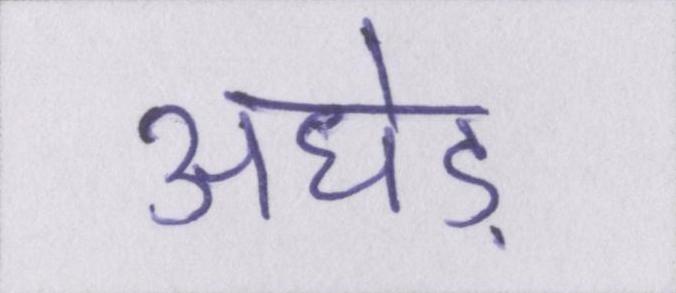 अधेड़